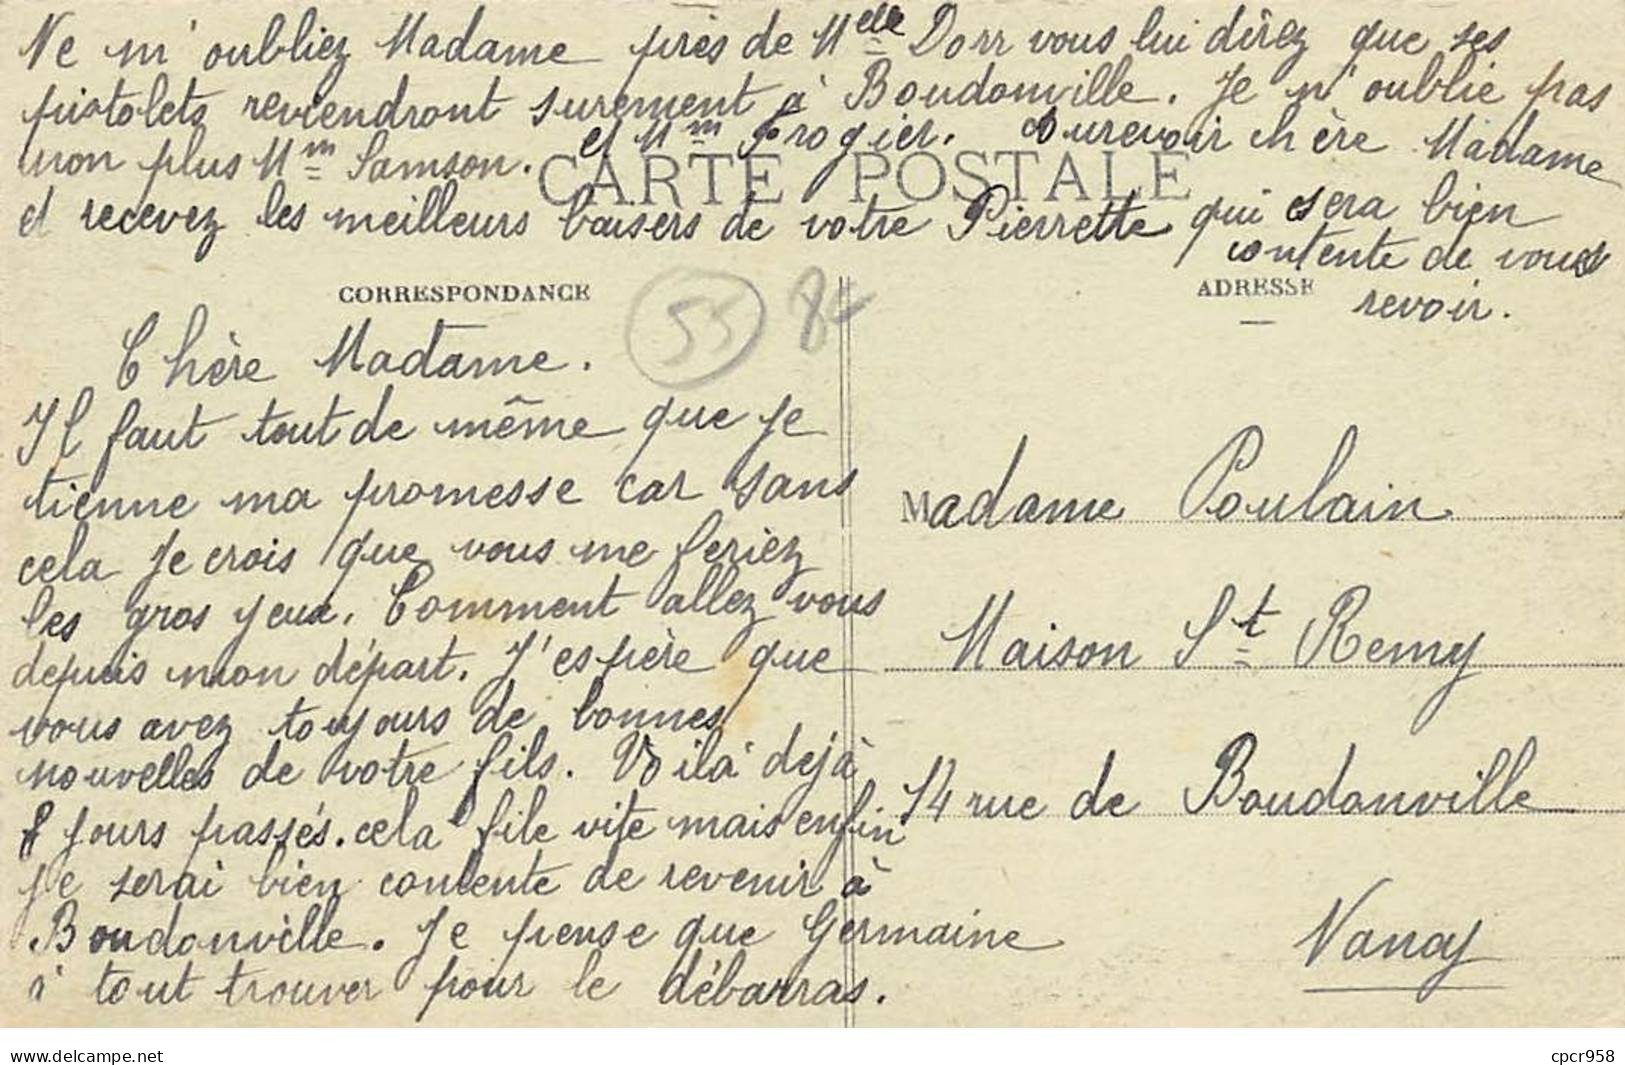 Ne m'oubliez Madame près de Melle Dorr vous lui direz que ses
pistolets reviendront surement à Boudonville. Je n'oublie pas
non plus Mm Samson. et Mm Frogier. Aurevoir chère Madame
CARTE POSTALE
et recevez les meilleurs baisers de votre Pierrette qui sera bien
contente de vous
revoir.
CORRESPONDANCE
55
ADRESSE
Chère Madame.
Il faut tout de même que je
tienne ma promesse car sans
cela je crois que vous me feriez
les gros yeux. Comment allez vous
depuis mon départ. J'espère que
vous avez toujours de bonnes
nouvelles de votre fils. Voilà dejà
8 jours passés. cela file vite mais enfin
je serai bien contente de revenir à
Boudonville. Je pense que Germaine
à tout trouver pour le débarras.
Madame Poulain
Maison St Remy
14 rue de Boudonville
Nancy
www.delcampe.net
cpcr958